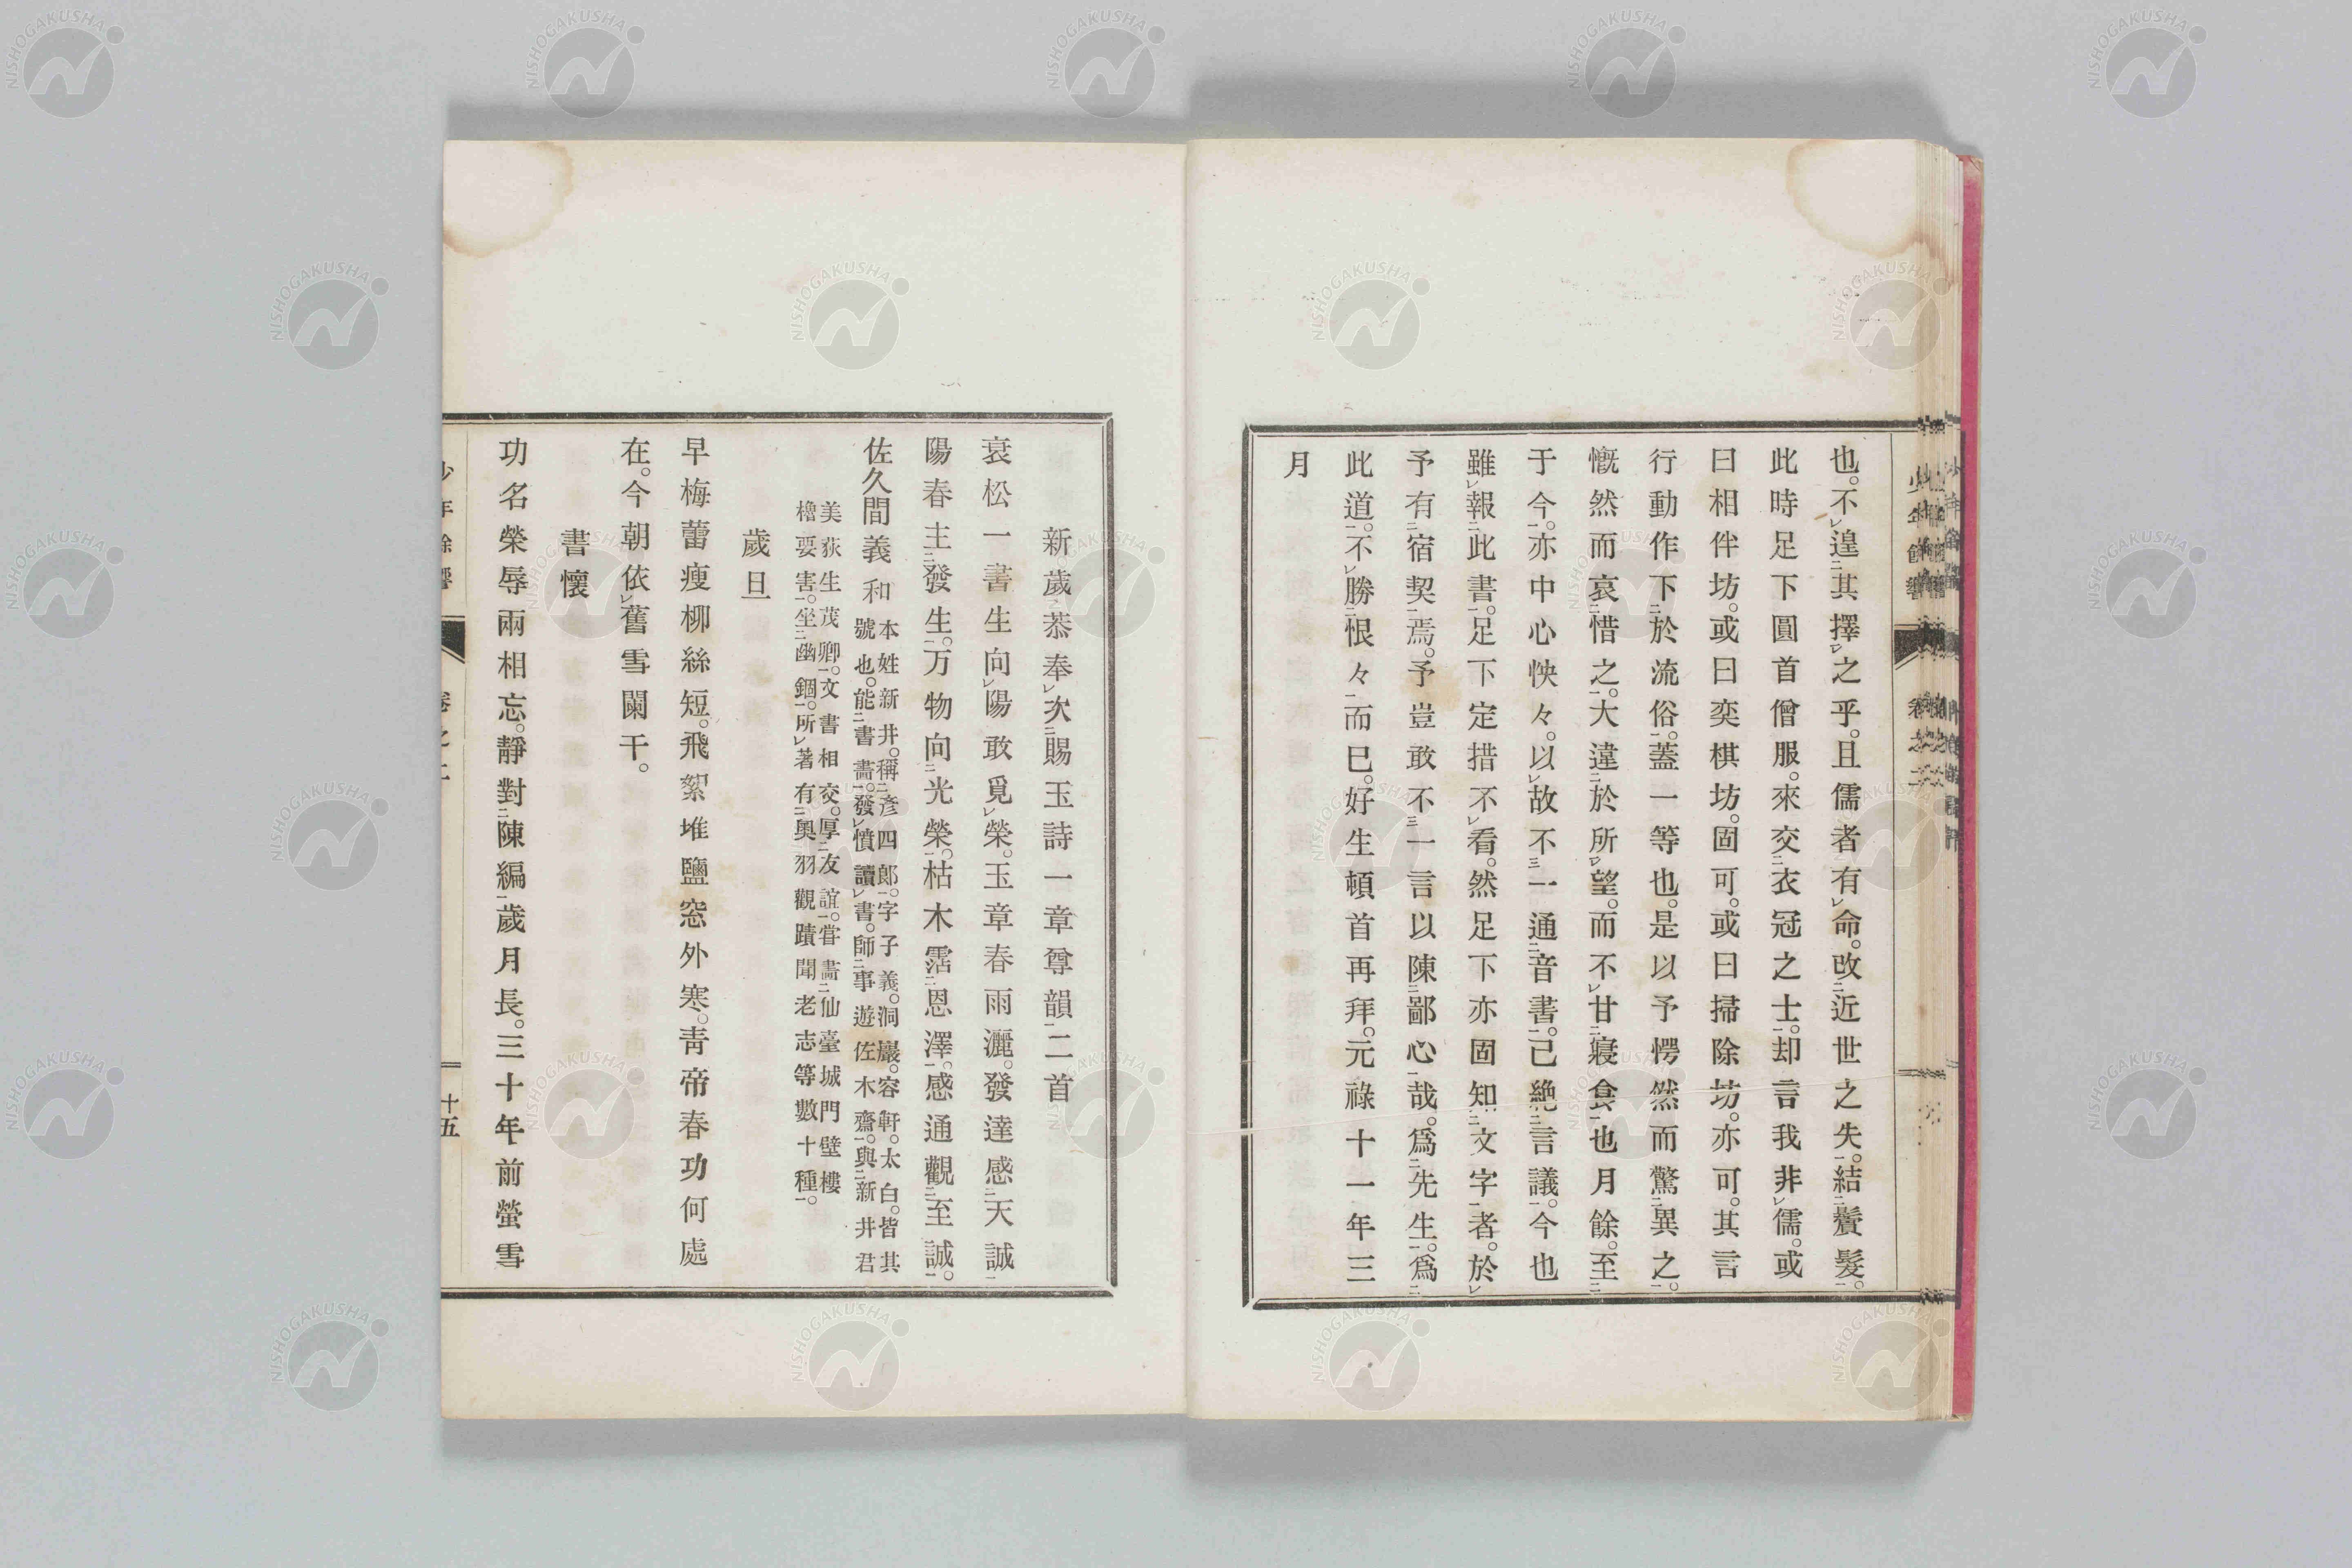 也。不遑其擇之乎。且儒者有命。改近世之失。結鬢髮。
此時足下圓首僧服。來交衣冠之士。却言我非儒。或
曰相伴坊。或曰奕棋坊。固可。或曰掃除坊。亦可。其言
行動作下於流俗。蓋一等也。是以予愕然而驚異之。
慨然而哀惜之。大違於所望。而不甘寢食也月餘。至
于今。亦中心怏々。以故不一通音書。己絶言議。今也
雖報此書。足下定措不看。然足下亦固知文字者。於
予有宿契焉。予豈敢不一言以陳鄙心哉。爲先生。爲
此道。不勝恨々而巳。好生頓首再拜。元祿十一年三
月
新歲恭奉次賜玉詩一章尊韻二首
衰松一書生向陽敢覓榮。玉章春雨灑。發達感天誠
陽春主發生。万物向光榮。枯木霑恩澤。感通觀至誠。
佐久間義和
本姓新井。稱彥四郎。字子義。洞巖。容軒。太白。皆其
號也。能書畵。發憤讀書。師事遊佐木齋。與新井君
美荻生茂卿。文書相交。厚友誼。嘗畵仙臺城門壁樓
櫓要害。坐幽錮。所著有奧羽觀蹟聞老志等數十種。
歲旦
早梅蕾瘦柳絲短。飛絮堆鹽窓外寒。靑帝春功何處
在。今朝依舊雪闌干。
書懷
功名榮辱兩相忘。靜對陳編歲月長。三十年前螢雪
十五
NISHOGAKUSHA